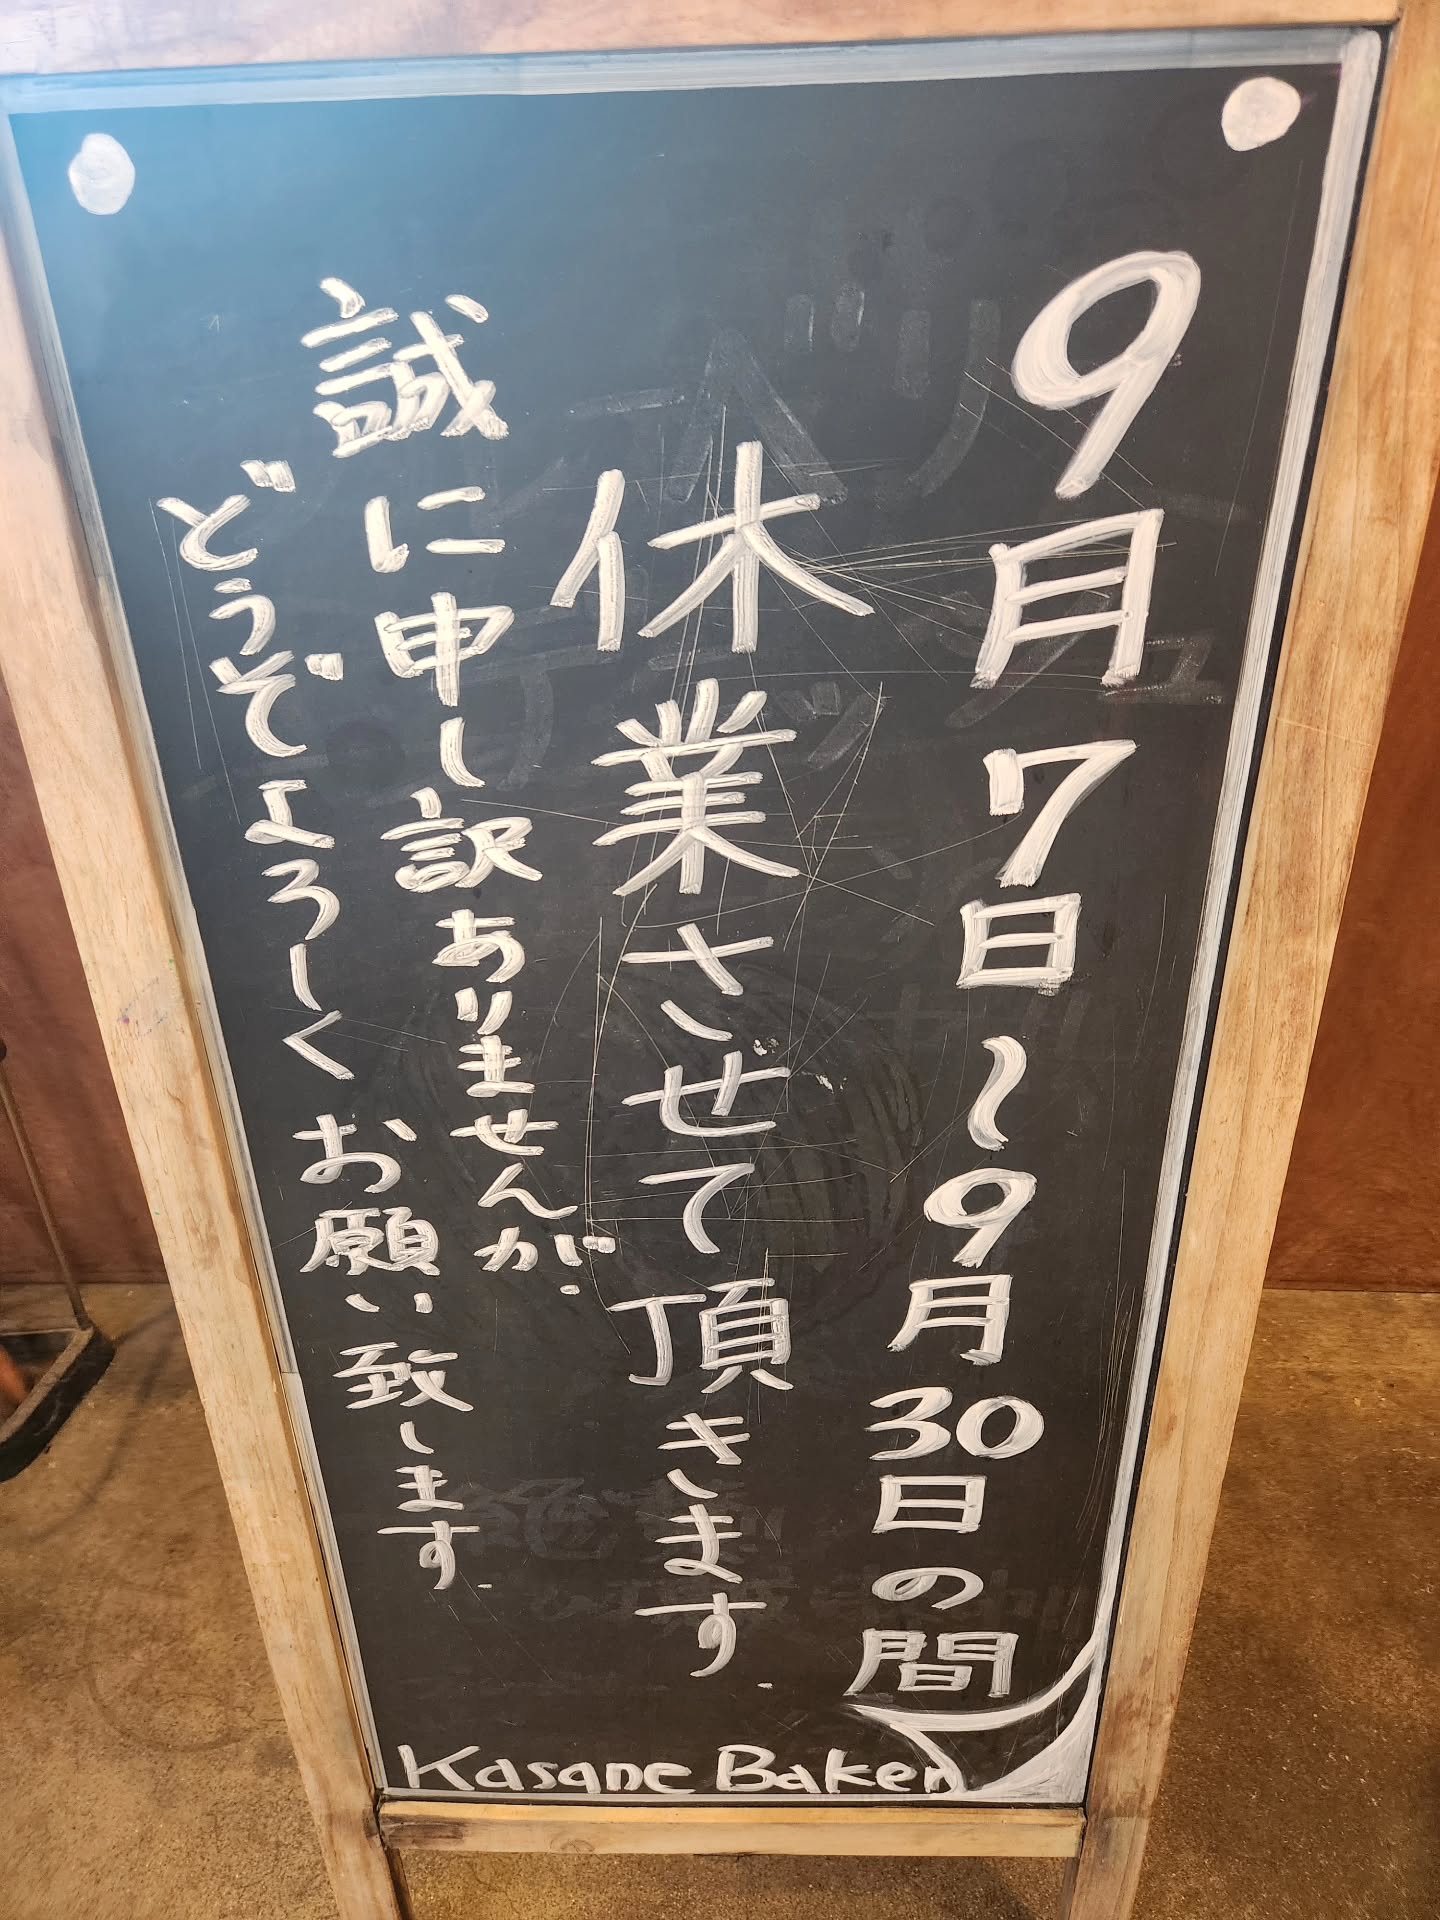 9月7日〜9月30日の間
休業させて頂きます.
誠に申し訳ありませんが.
どうぞよろしくお願い致します.
Kasane Bakery